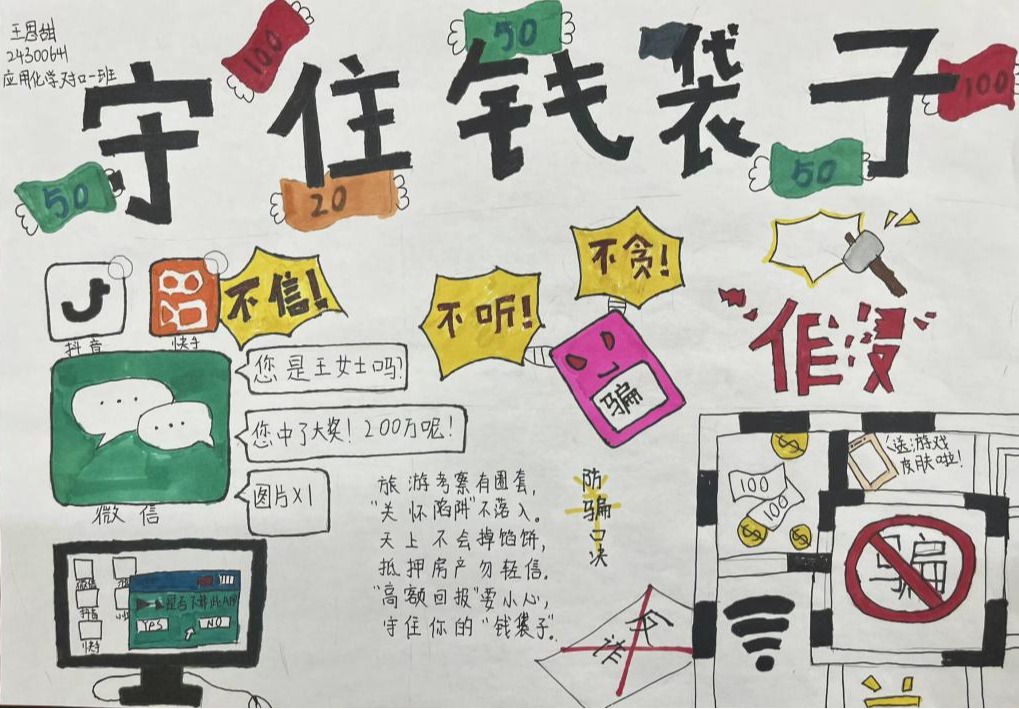 王思甜
24300641
应用化学对口一班
守住钱袋子
100
50
100
50
20
50
不信!
不听!
不贪!
抖音
快手
骗
您是王女士吗?
您中了大奖! 200万呢!
图片X1
微信
旅游考察有圈套,
"关怀陷阱"不落入。
天上不会掉馅饼,
抵押房产勿轻信.
"高额回报"要小心,
守住你的"钱袋子".
防骗口诀
送游戏
皮肤啦!
100
100
骗
微信
抖音
快手
是否下载此APP
YES
NO